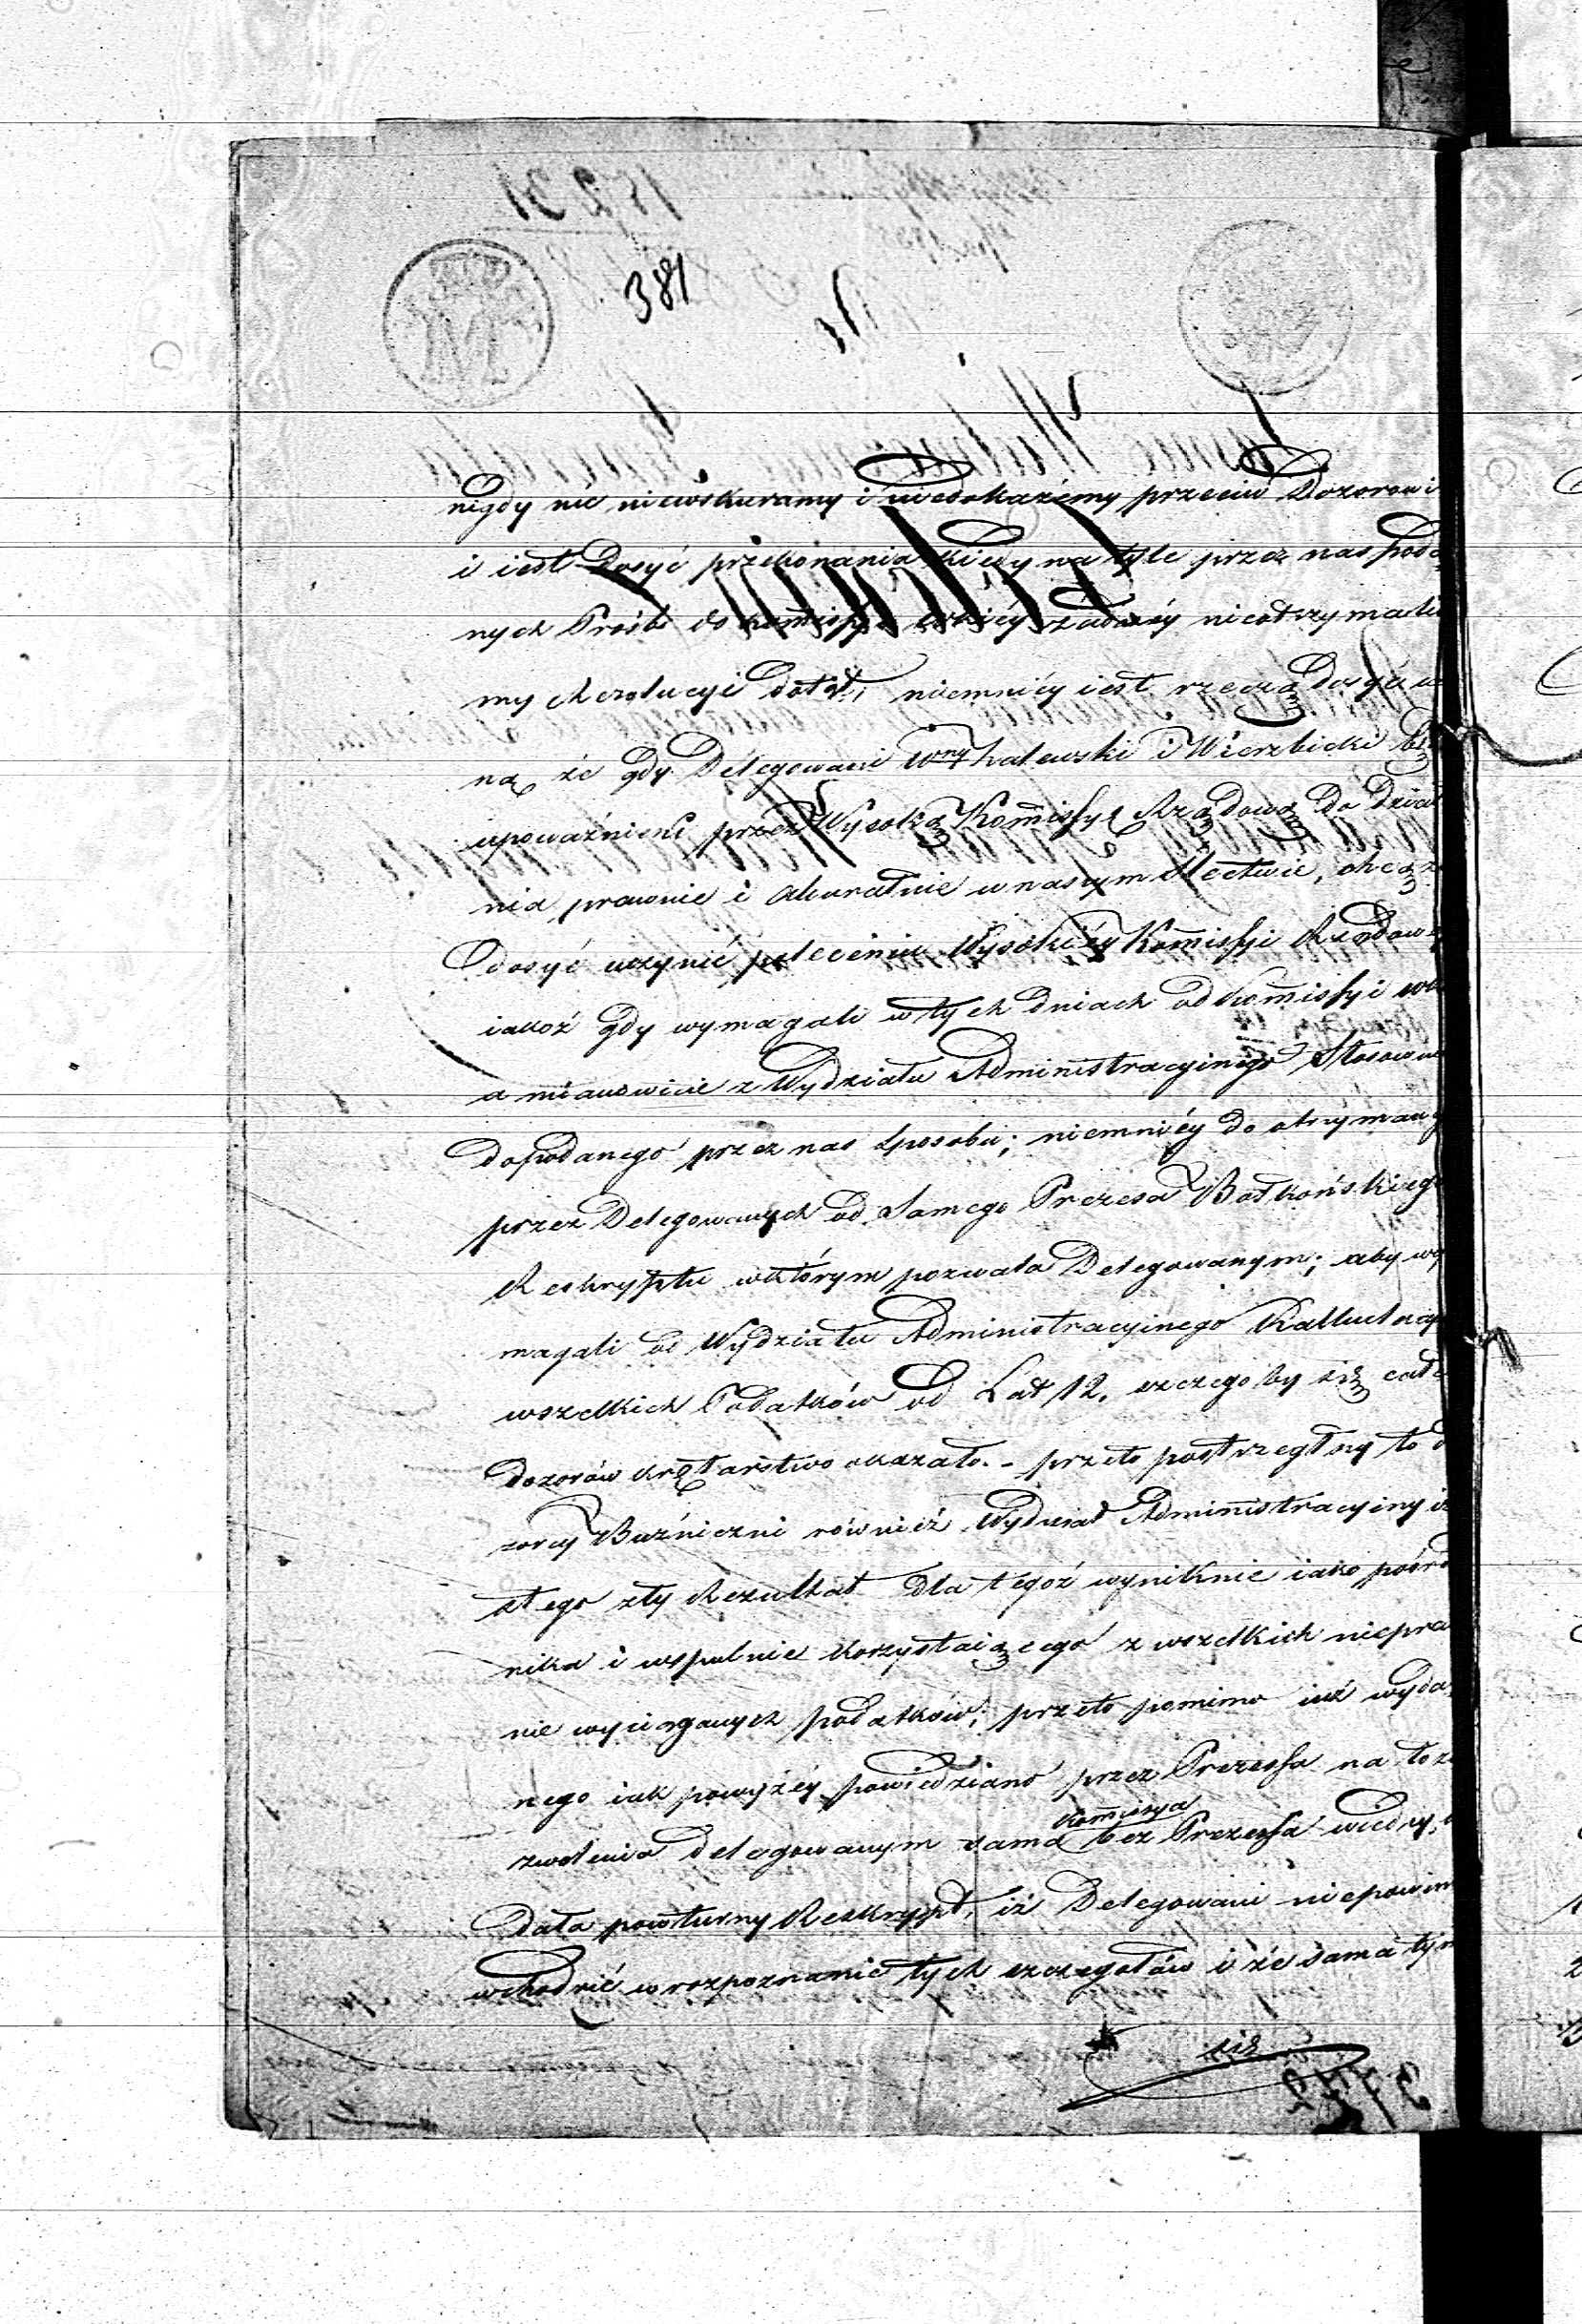 381
nigdy nic niewskuramy i niedokażemy przeciw Dozorowi
i iest dosyć przekonania kiedy na tyle przez nas poda
nych Próśb do żadnéy nieotrzymali
my Rezolucyi dotąd, niemniéy iest rzeczą dosyć
ną że gdy Delegowani Wny i Wierzbicki
upoważnieni przez Wysoką Kommissyę Rządową do dział
nia prawnie i akuratnie w naszym Mectwie, chcąc
dosyć uczynić poleceniu Wysokiéy Kommissyi Rządow
iakoż gdy wymagali w tych dniach od Kommissyi
a mianowicie z Wydziału Administracyinego Stosown
do podanego przez nas sposobu; niemniéy do otrzymane
przez Delegowanych od Samego Prezesa Bolkońskieg
Reskryptu w którym pozwala Delegowanym; aby wy
magali od Wydziału Administracyinego
wszelkich Podatków od Lat 12. z czego by się całe
dozorów krętarstwo okazało. - przeto postrzegłszy to d
zorcy Bużniczni również Wydział Administracyiny iż
z tego zły Rezultat dla tegoż wyniknie iako pośred
nika i wspulnie korzystaiącego z wszelkich niepraw
nie wyciąganych podatków; przeto pomimo iuż wyda
nego iak powyżéy powiedziano przez Prezessa na to ze
zwolenia delegowanym sama Kommissya bez Prezessa wiedzy,
dała powturny Reskrypt, iż Delegowani niepowin
wchodzić w rozpoznanie tych szczegołów i że sama tym
się